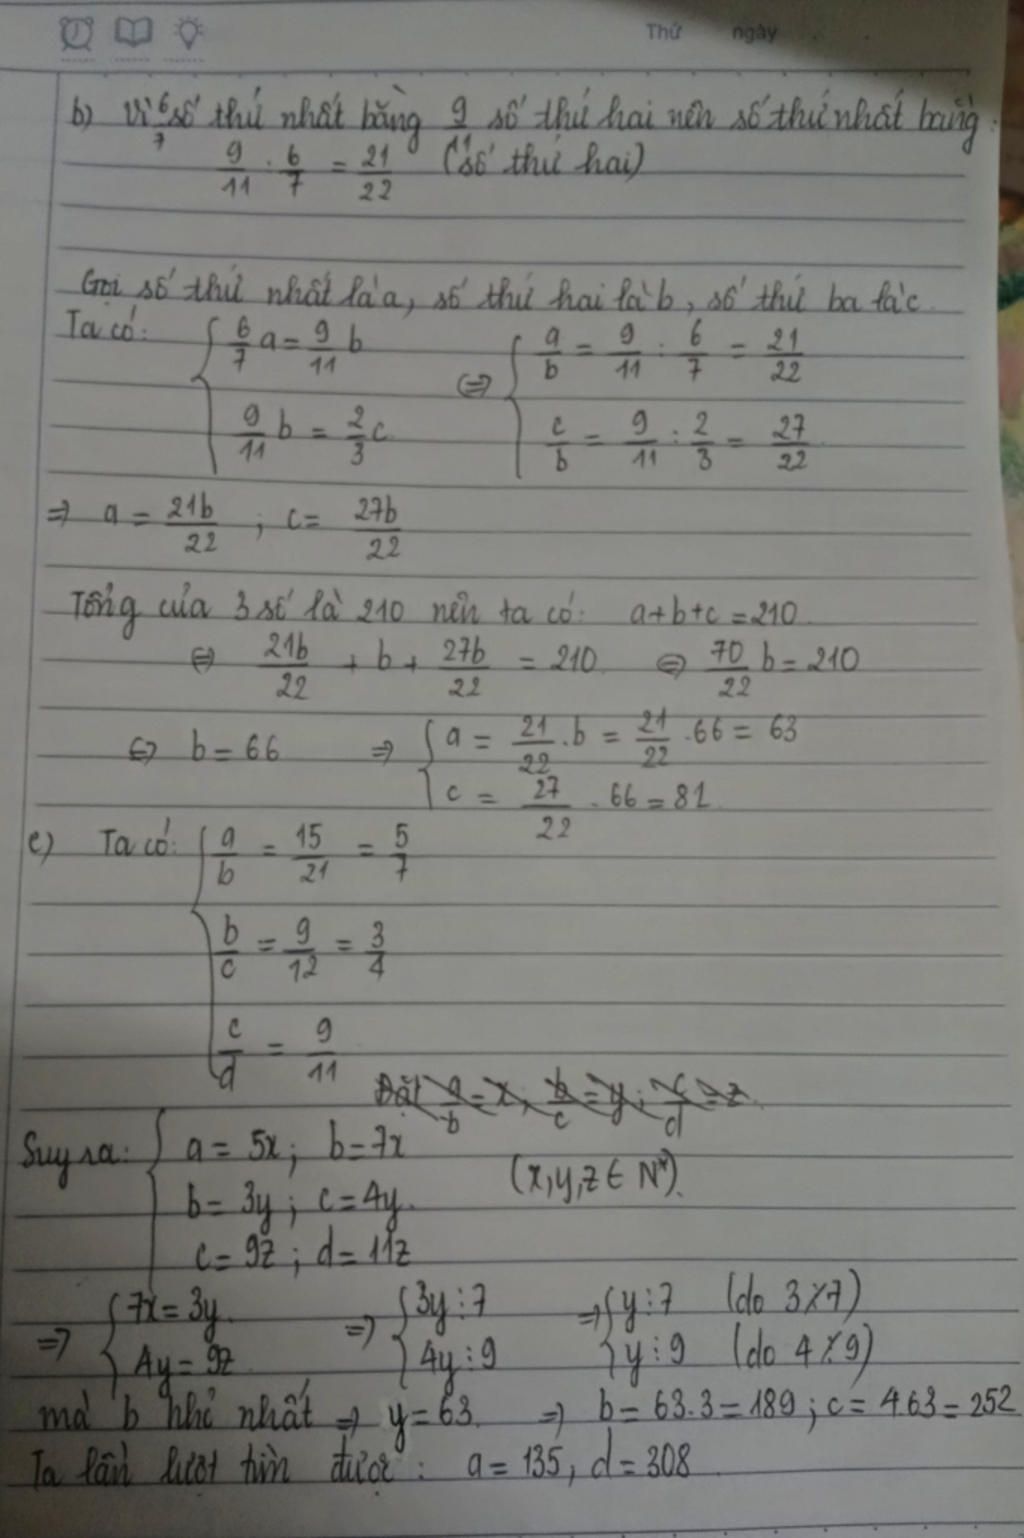 Thứ ngày
b) Vì 6/7 số thứ nhất bằng 9/11 số thứ hai nên số thứ nhất bằng:
9/11 : 6/7 = 21/22 (số thứ hai)
Gọi số thứ nhất là a, số thứ hai là b, số thứ ba là c.
Ta có: { 6/7 a = 9/11 b ; 9/11 b = 2/3 c ⇔ { a/b = 9/11 : 6/7 = 21/22 ; c/b = 9/11 : 2/3 = 27/22
⇒ a = 21b/22 ; c = 27b/22
Tổng của 3 số là 210 nên ta có: a+b+c = 210.
⇔ 21b/22 + b + 27b/22 = 210 ⇔ 70/22 b = 210
⇔ b = 66 ⇒ { a = 21/22 . b = 21/22 . 66 = 63
c = 27/22 . 66 = 81
c) Ta có: { a/b = 15/21 = 5/7
b/c = 9/12 = 3/4
c/d = 9/11
Đặt a/b = x; b/c = y; c/d = z.
Suy ra: { a = 5x; b = 7x
b = 3y; c = 4y. (x,y,z ∈ N*).
c = 9z; d = 11z
⇒ { 7x = 3y ⇒ { 3y ⋮ 7 ⇒ { y ⋮ 7 (do 3 ⋮̸ 7)
4y = 9z 4y ⋮ 9 y ⋮ 9 (do 4 ⋮̸ 9)
mà b nhỏ nhất ⇒ y = 63. ⇒ b = 63.3 = 189; c = 4.63 = 252
Ta lần lượt tìm được: a = 135, d = 308